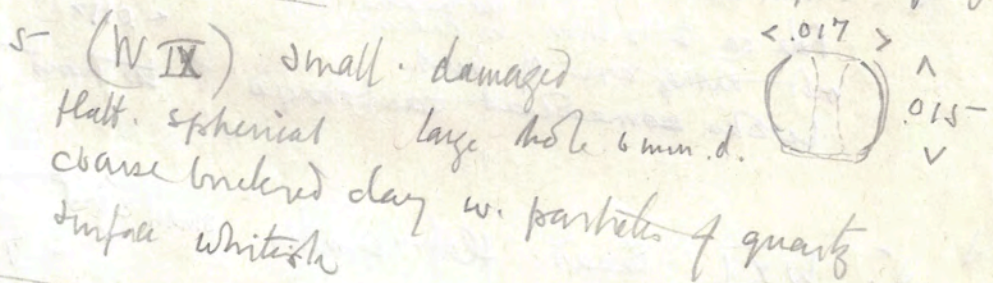 5 (W IX) small. damaged
flatt. spherical large hole 6 mm. d.
coarse brickred clay w. particles of quartz
surface whitish
< .017 >
^
.015
v